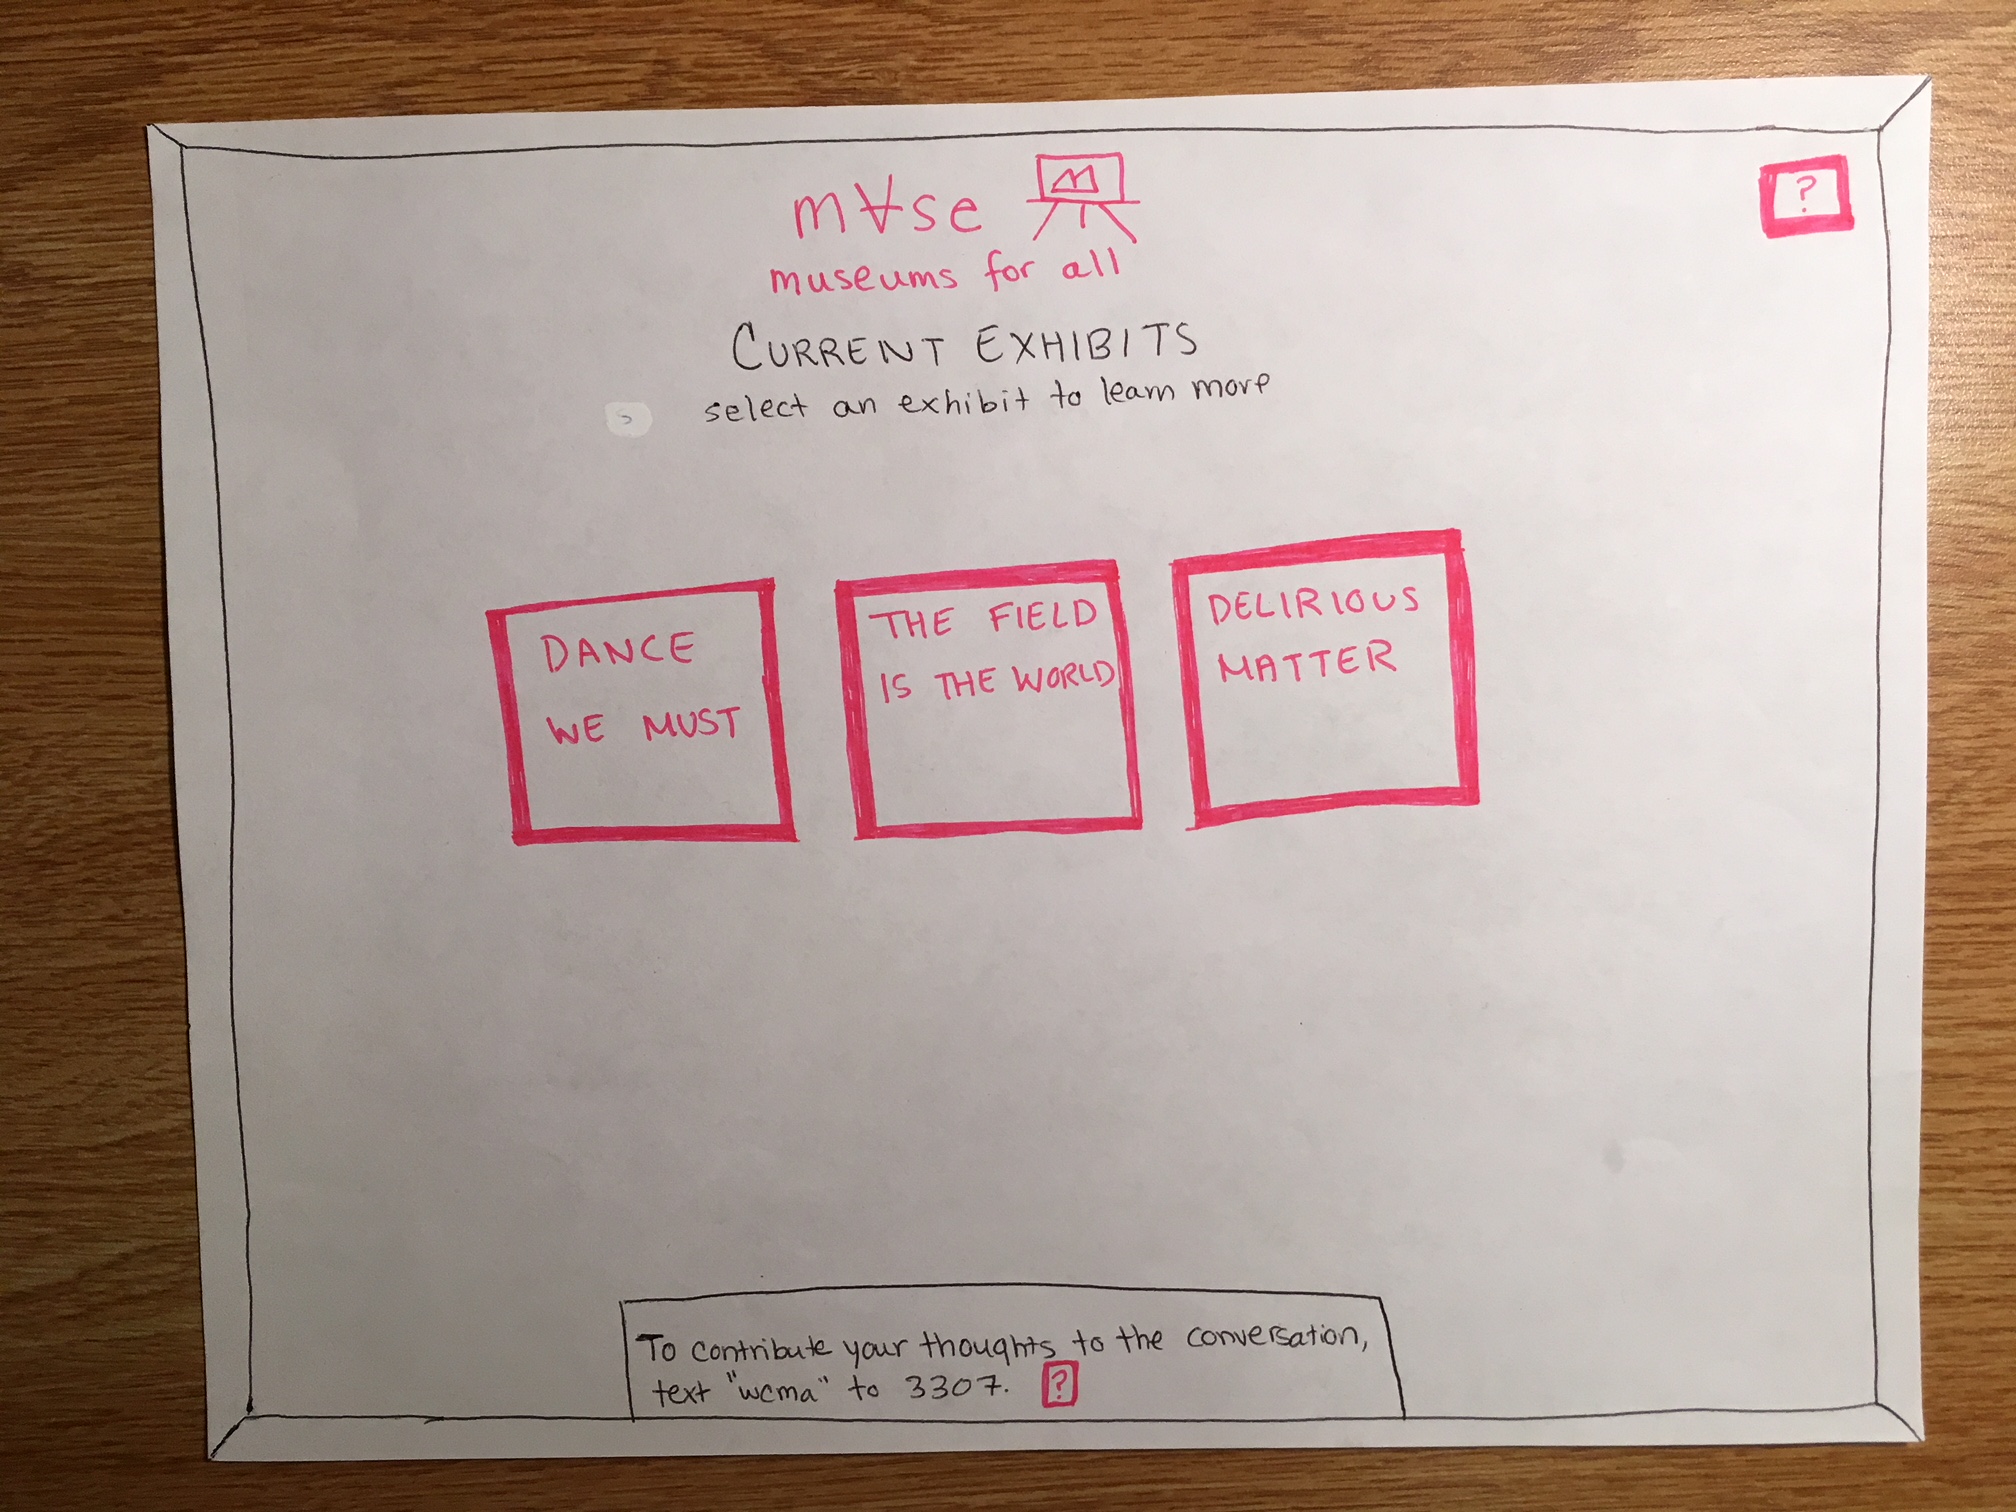 m∀se
?
museums for all
CURRENT EXHIBITS
select an exhibit to learn more
S
DANCE
WE MUST
THE FIELD
IS THE WORLD
DELIRIOUS
MATTER
To contribute your thoughts to the conversation,
text "wcma" to 3307. ?